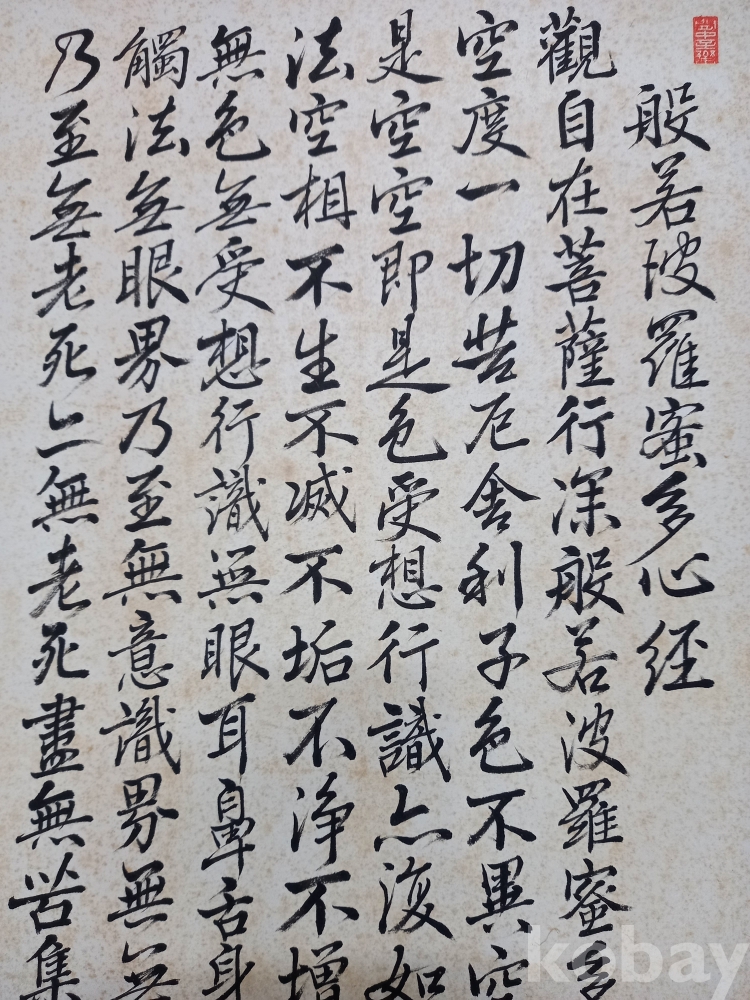 般若波羅蜜多心經
觀自在菩薩行深般若波羅蜜多
空度一切苦厄舍利子色不異空
是空空即是色受想行識亦復如
法空相不生不滅不垢不淨不增
無色無受想行識無眼耳鼻舌身
觸法無眼界乃至無意識界無無
乃至無老死亦無老死盡無苦集
kobay